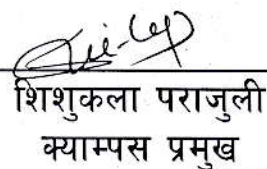 शिशुकला पराजुली
क्याम्पस प्रमुख